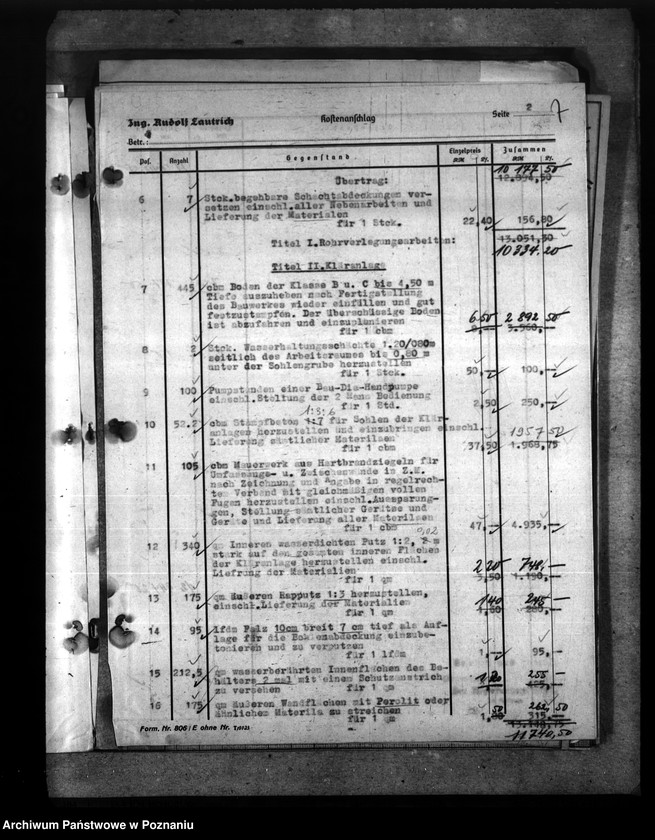 Ing. Rudolf Lautrich
Kostenanschlag
Seite 2
7
Betr.:
Pos. Anzahl Gegenstand Einzelpreis Zusammen
RM Rf. RM Rf.
Übertrag: 10 177,50
12.894,50
6 7 Stck.begehbare Schachtabdeckungen ver-
setzen einschl.aller Nebenarbeiten und
Lieferung der Materialen
für 1 Stck. 22,40 156,80
Titel I.Rohrverlegungsarbeiten: 13.051,30
10 334.20
Titel II.Kläranlage
7 445 cbm Boden der Klasse B u. C bis 4,50 m
Tiefe auszuheben nach Fertigstellung
des Bauwerkes wieder einfüllen und gut
festzustampfen. Der überschüssige Boden
ist abzufahren und einzuplanieren 6.50 2 892 50
für 1 cbm 3.560,—
8 2 Stck. Wasserhaltungsschächte 1.20/080m
seitlich des Arbeitsraumes bis 0,80 m
unter der Sohlengrube herzustellen
für 1 Stck. 50,— 100,—
9 100 Pumpstunden einer Bau-Dia-Handpumpe
einschl.Stellung der 2 Mann Bedienung
für 1 Std. 2,50 250,—
1:3:6
10 52.2 cbm Stampfbeton 1:7 für Sohlen der Klär-
anlagen herzustellen und einzubringen einschl. 1957 50
Lieferung sämtlicher Materilaen
für 1 cbm 37,50 1.968,75
11 105 cbm Mauerwerk aus Hartbrandziegeln für
Umfassungs- u. Zwischenwände in Z.M.
nach Zeichnung und Angabe in regelrech-
ten Verband mit gleichmäßigen vollen
Fugen herzustellen einschl.Aussparun-
gen, Stellung sämtlicher Gerätse und
Geräte und Lieferung aller Materilaen
für 1 cbm 47,— 4.935,—
0,02
12 340 qm Inneren wasserdichten Putz 1:2, 2 m
stark auf den gesamten inneren Flächen
der Kläranlage herzustellen einschl.
Liefrung der Materialien 2 20 748,—
für 1 qm 3,50 1.190,—
13 175 qm äußeren Rapputz 1:3 herzustellen,
einschl.Lieferung der Materialien 1 40 245,—
für 1 qm 1,60 280,—
14 95 lfdm Falz 10cm breit 7 cm tief als Auf-
lage für die Bohlenabdeckung einzube-
tonieren und zu verputzen
für 1 lfdm 1,— 95,—
15 212,5 qm wasserberührten Innenflächen des Be-
hälters 2 mal mit einem Schutzanstrich 1 20 255 —
zu versehen für 1 qm
16 175 qm äußeren Wandflächen mit Perolit oder
ähnliches Materila zu streichen 50 262, 50
für 1 qm 1,80 315,—
11 740,50
Form. Nr. 806 / E ohne Nr.
Archiwum Państwowe w Poznaniu